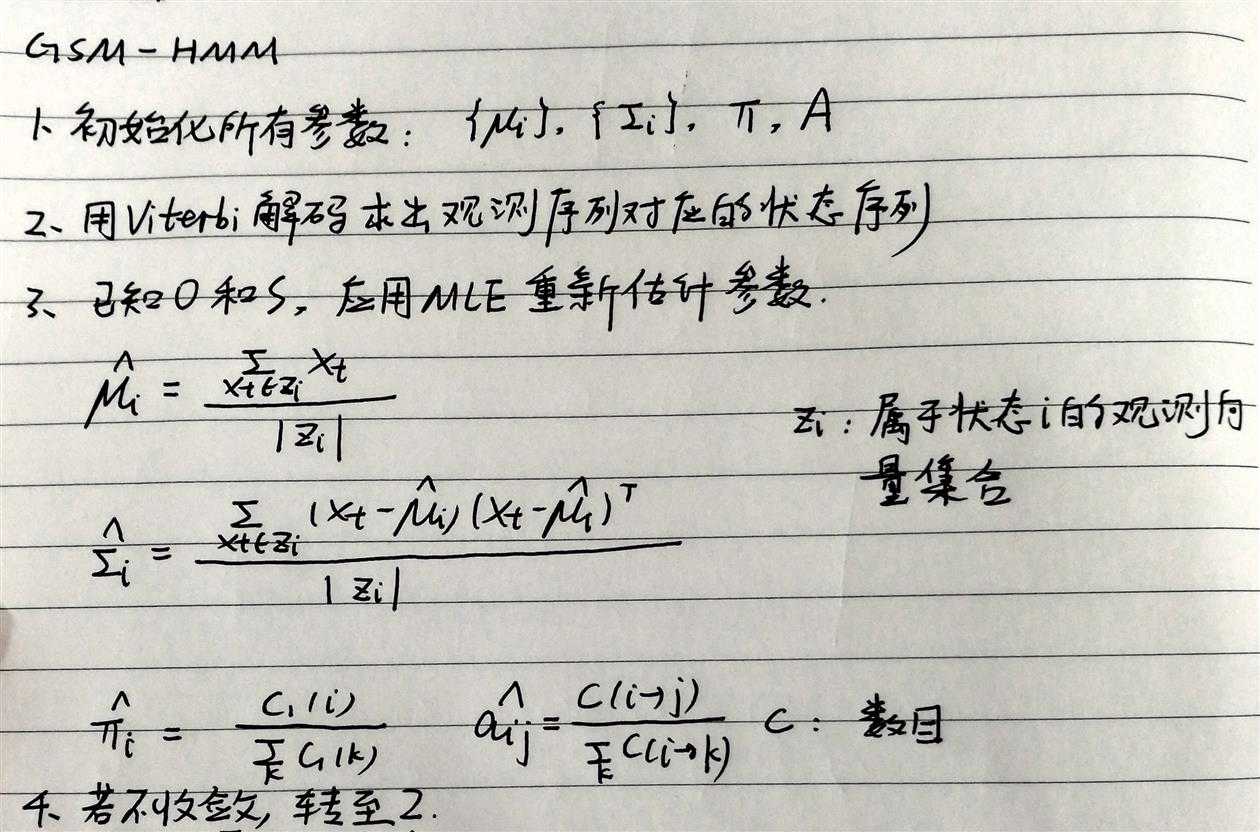 GSM-HMM
1、初始化所有参数: {μi}, {Σi}, π, A
2、用Viterbi解码求出观测序列对应的状态序列
3、已知O和S, 应用MLE重新估计参数.
μ̂i = Σ_{xt∈zi} xt / |zi|
zi: 属于状态i的观测向
量集合
Σ̂i = Σ_{xt∈zi} (xt-μ̂i)(xt-μ̂i)^T / |zi|
π̂i = C1(i) / Σ_k C1(k)  âij = C(i→j) / Σ_k C(i→k)  C: 数目
4、若不收敛, 转至2.